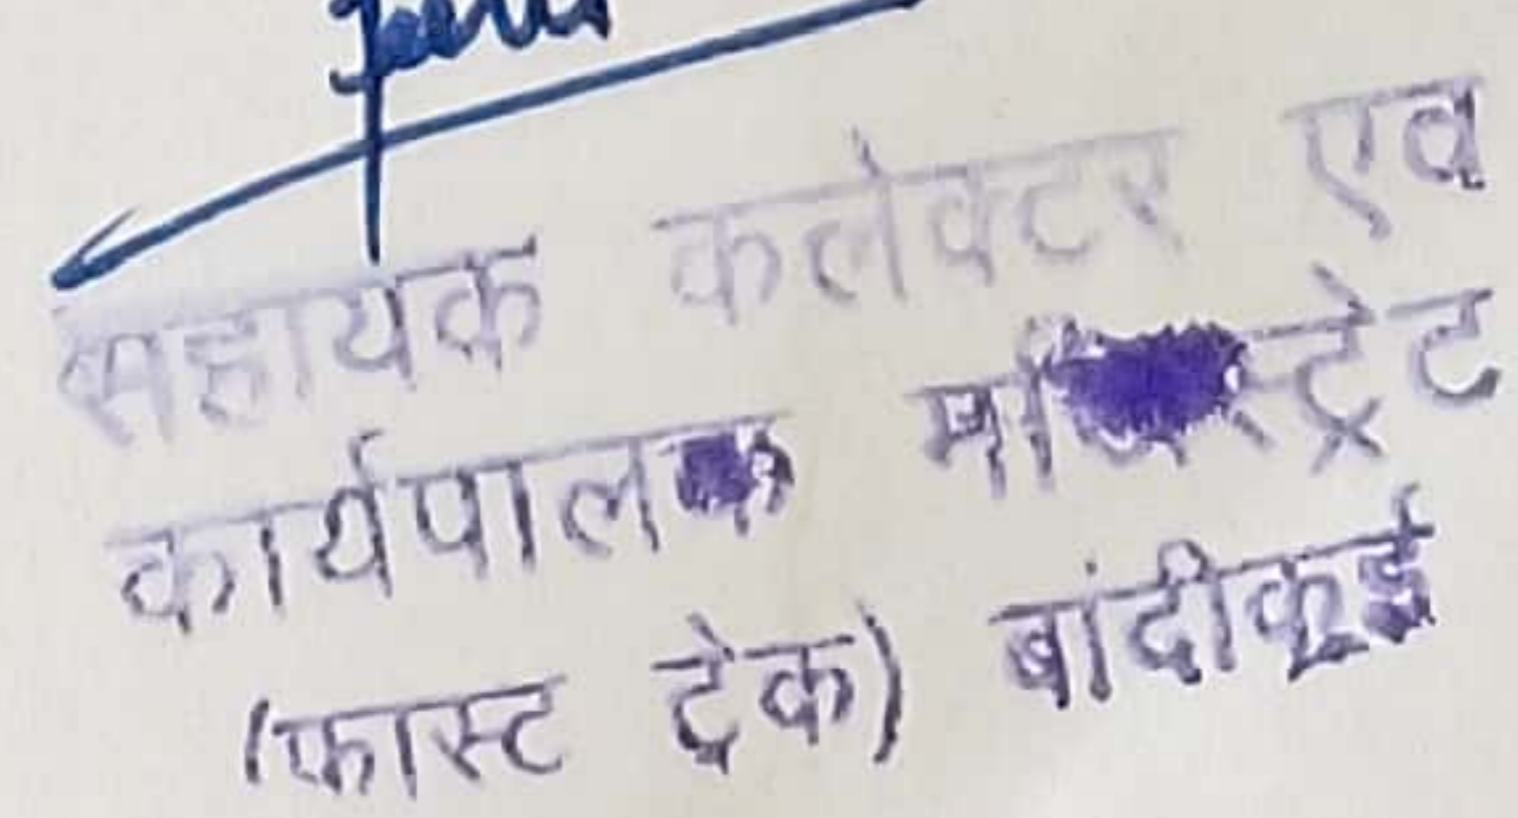 सहायक कलेक्टर एव
कार्यपालक
(फास्ट ट्रेक) बांदीकुई